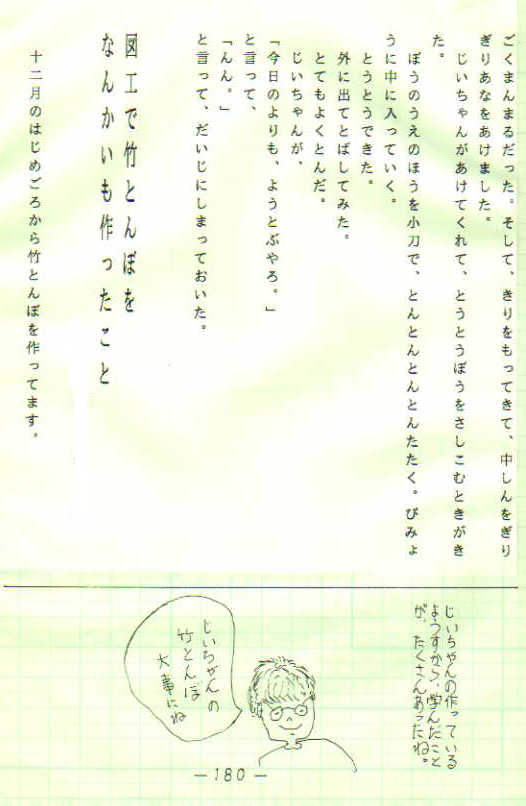 ごくまんまるだった。そして、きりをもってきて、中しんをぎり
ぎりあなをあけました。
じいちゃんがあけてくれて、とうとうぼうをさしこむときがき
た。
ぼうのうえのほうを小刀で、とんとんとんとんたたく。びみょ
うに中に入っていく。
とうとうできた。
外に出てとばしてみた。
とてもよくとんだ。
じいちゃんが、
「今日のよりも、ようとぶやろ。」
と言って、
「んん。」
と言って、だいじにしまっておいた。
図工で竹とんぼを
なんかいも作ったこと
十二月のはじめごろから竹とんぼを作ってます。
じいちゃんの作っている
ようすから、学んだこと
が、たくさんあったね。
じいちゃんの
竹とんぼ
大事にね
—180—